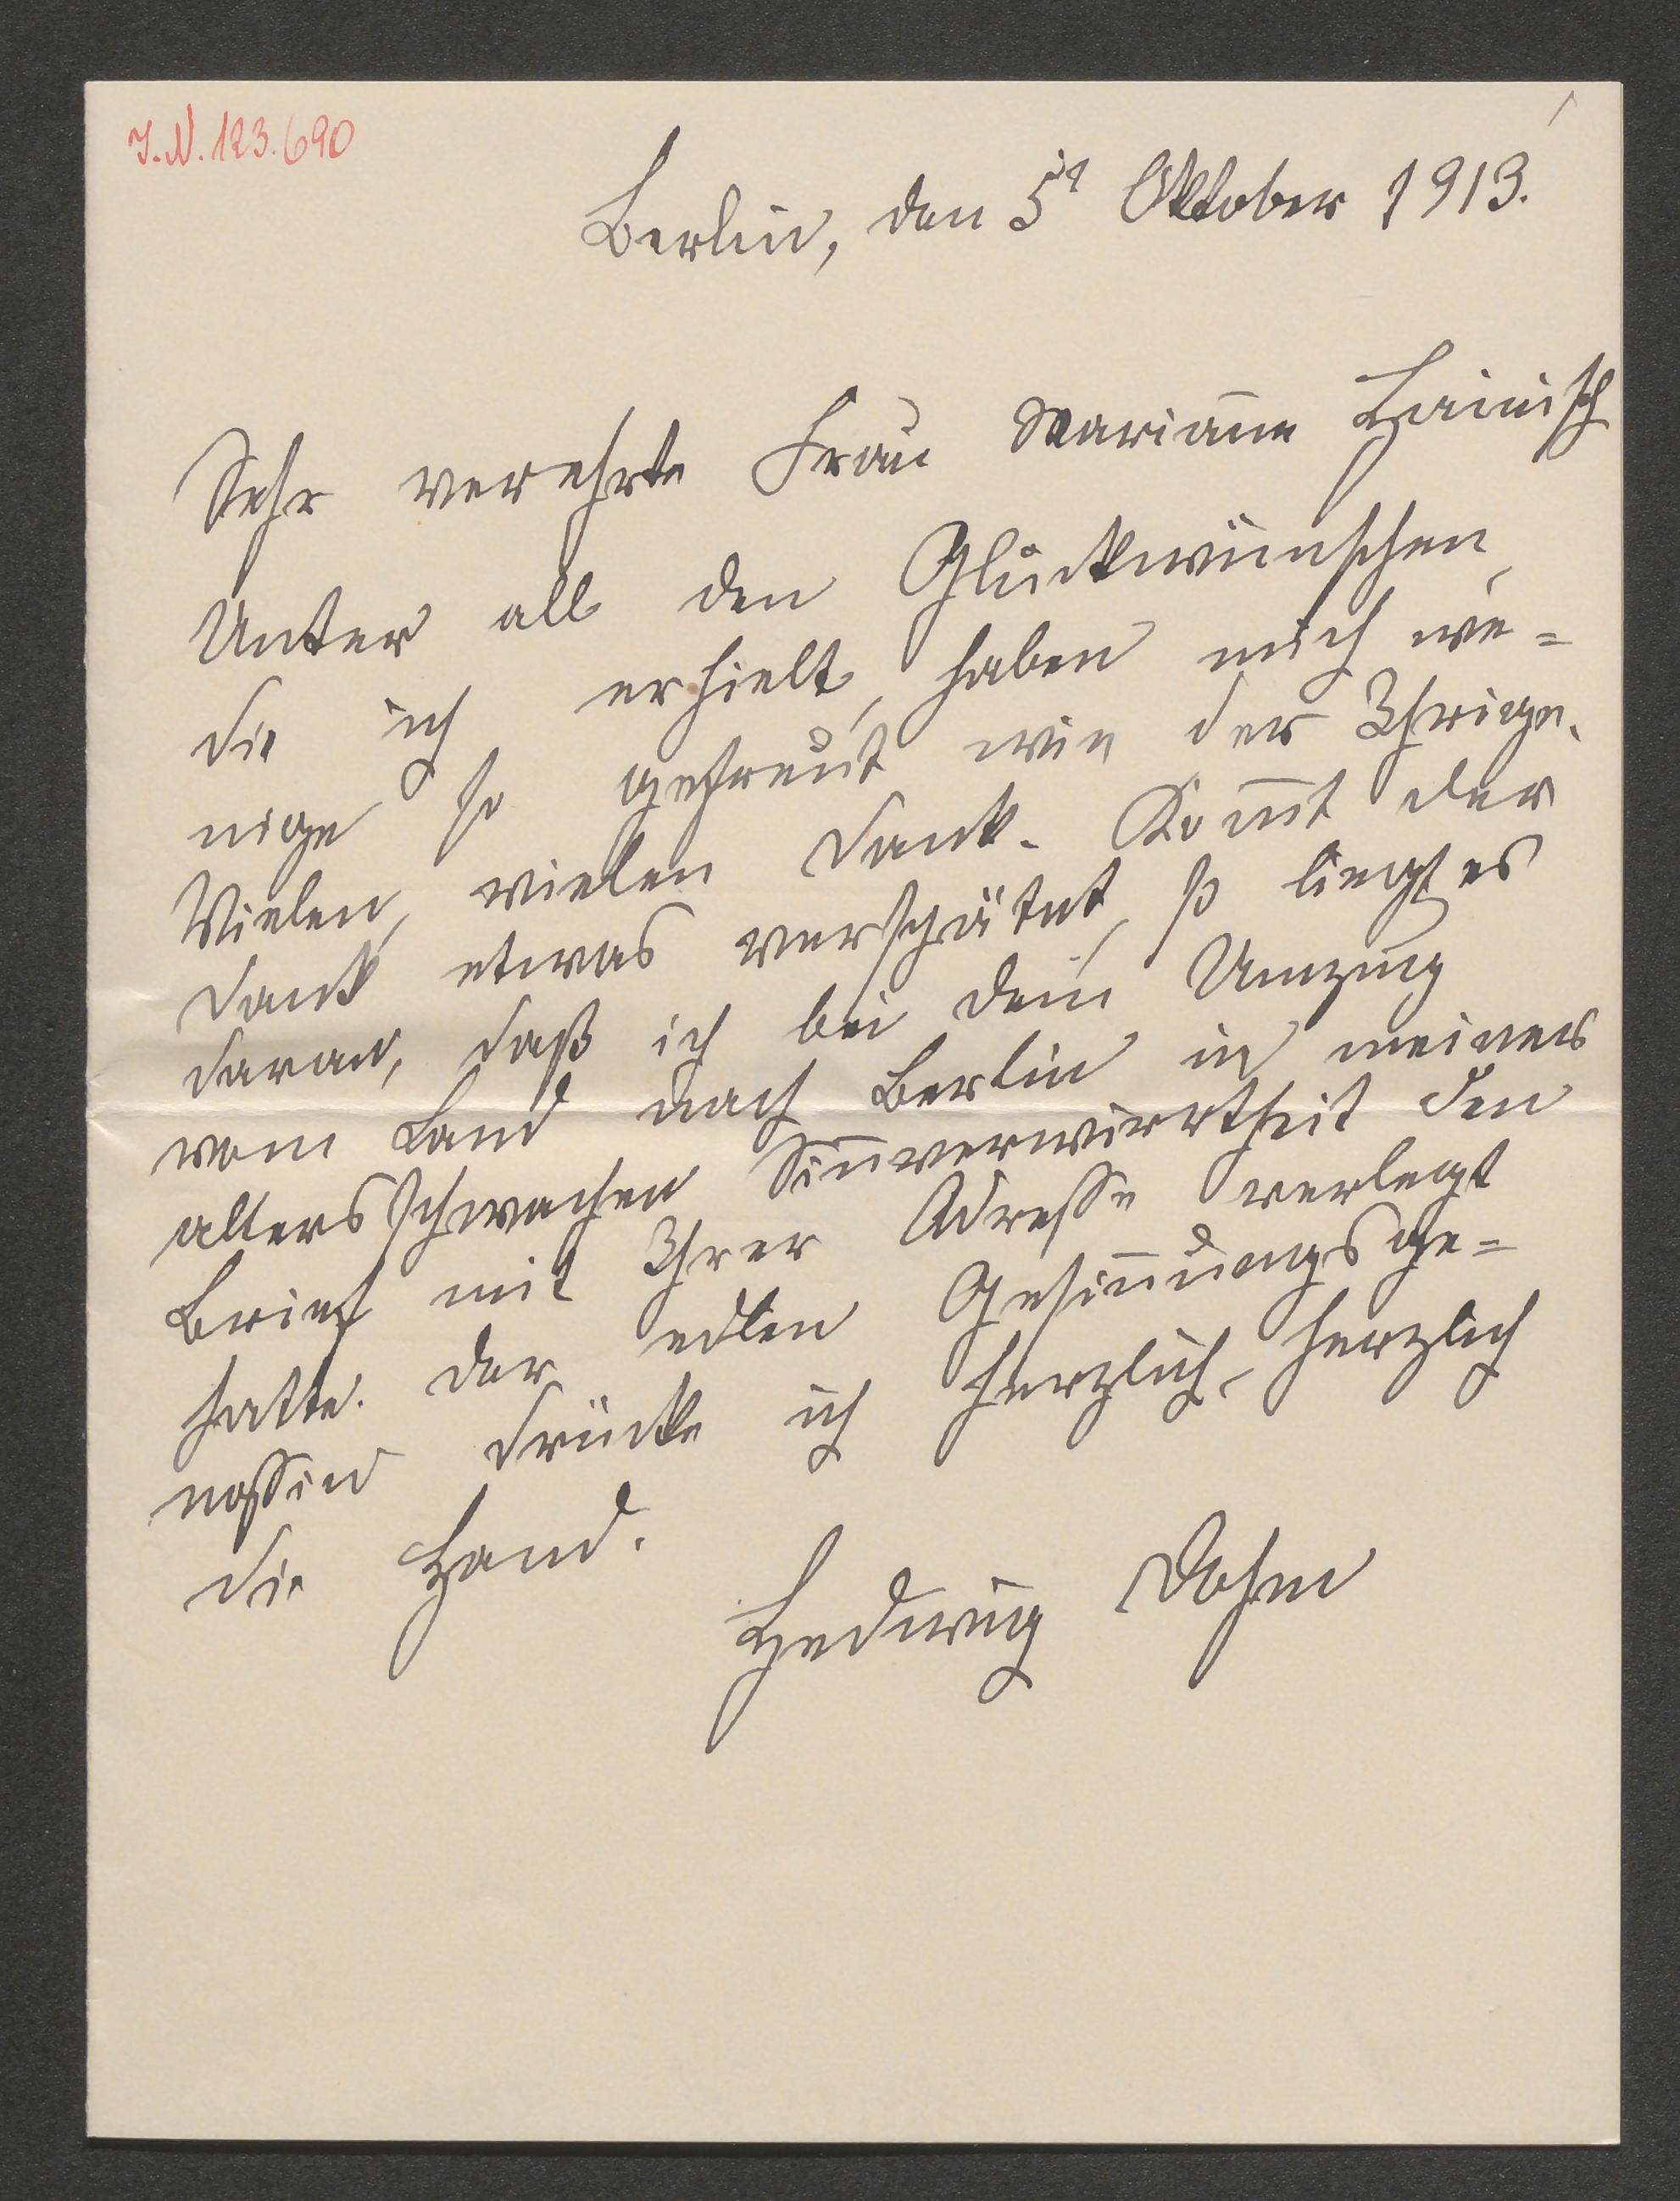 J.N. 123.690
Berlin, den 5t Oktober 1913.
Sehr verehrte Frau Mariane Hainisch
Unter all den Glückwünschen,
die ich erhielt, haben mich we-
nige so gefreut wie der Ihrige.
Vielen, vielen Dank. Komt der
Dank etwas verspätet, so liegt es
daran, daß ich bei dem Umzug
vom Land nach Berlin in meiner
altersschwachen Sinverwirrtheit den
Brief mit Ihrer Adresse verlegt
hatte. Der edlen Gesinungsge-
nossin drücke ich herzlich, herzlich
die Hand.
Hedwig Dohm